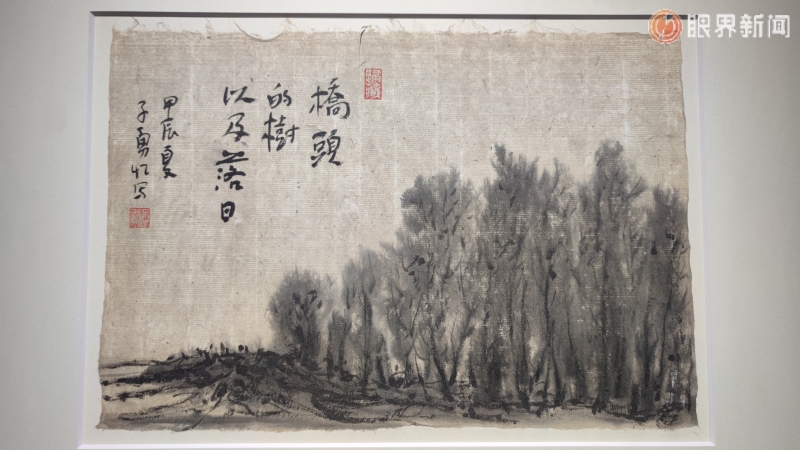 眼界新闻
橋頭
的樹
以及落日
甲辰夏
子勇忆写